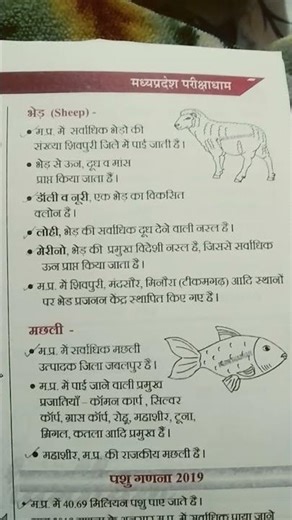 मध्यप्रदेश परीक्षाधाम
भेड़ (Sheep) -
म.प्र. में सर्वाधिक भेड़ो की
संख्या शिवपुरी जिले में पाई जाती है।
• भेड़ से ऊन, दूध व मांस
प्राप्त किया जाता है।
• डॉली व नूरी, एक भेड़ का विकसित
क्लोन है।
• लोही, भेड़ की सर्वाधिक दूध देने वाली नस्ल है।
• मेरीनो, भेड़ की प्रमुख विदेशी नस्ल है, जिससे सर्वाधिक
ऊन प्राप्त किया जाता है।
• म.प्र. में शिवपुरी, मंदसौर, मिनौरा (टीकमगढ़) आदि स्थानों
पर भेड़ प्रजनन केंद्र स्थापित किए गए है।
मछली -
म.प्र. में सर्वाधिक मछली
उत्पादक जिला जबलपुर है।
• म.प्र. में पाई जाने वाली प्रमुख
प्रजातियाँ - कॉमन कार्प, सिल्वर
कॉर्प, ग्रास कॉर्प, रोहू, महाशीर, टूना,
मिगल, कतला आदि प्रमुख हैं।
• महाशीर, म.प्र. की राजकीय मछली है।
पशु गणना 2019
म.प्र. में 40.69 मिलियन पशु पाए जाते है।